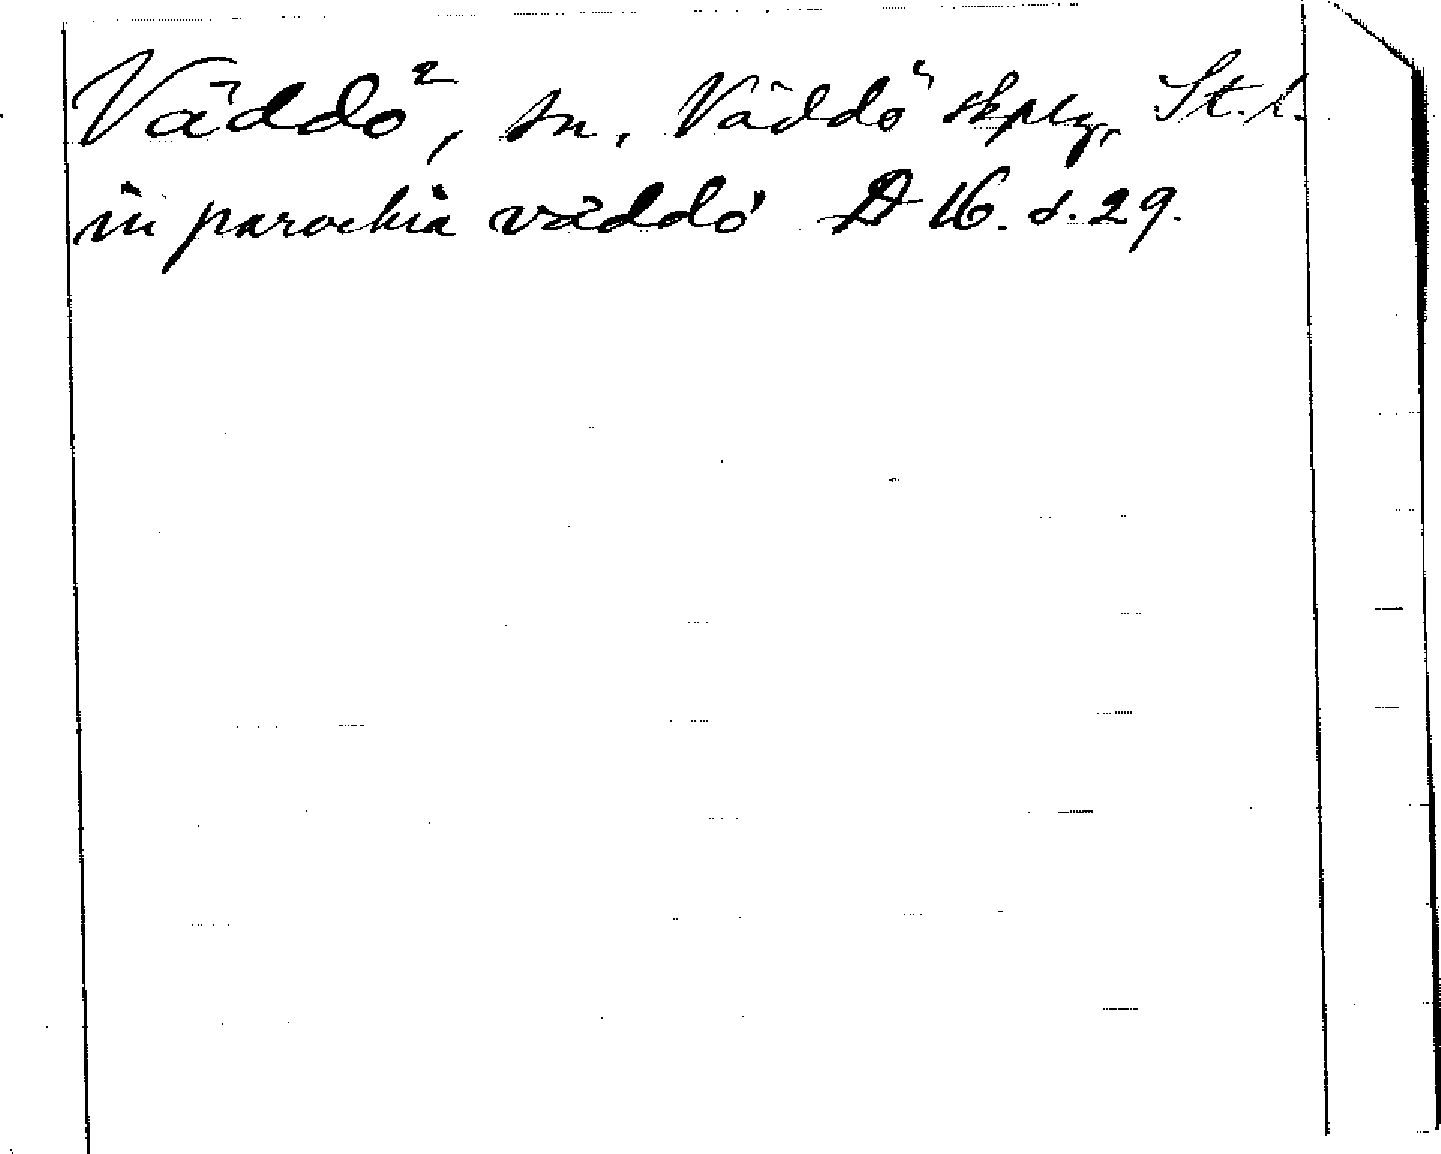 Väddö, sn, Väddö skplg, St. l.
in parochia väddö A 16. s. 29.